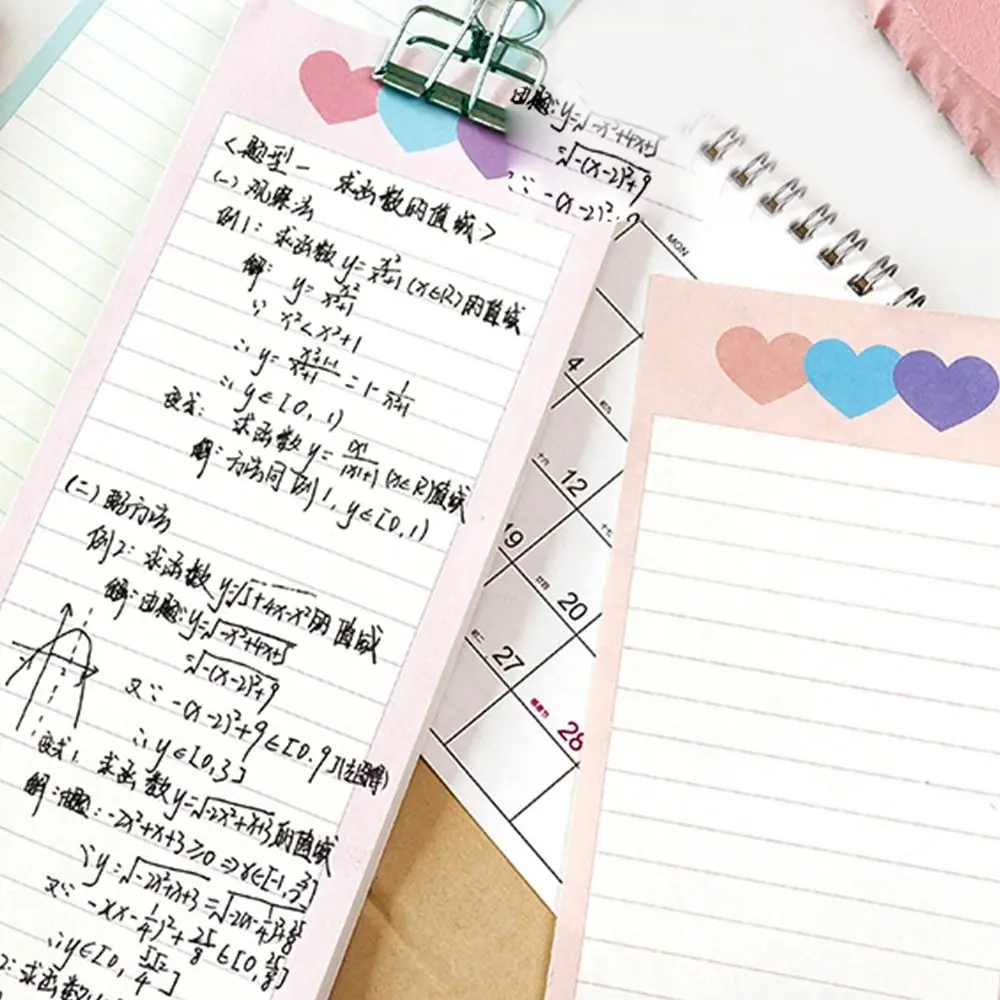 <题型一 求函数的值域>
(一)观察法
例1:求函数y=x²/x²+1(x∈R)的值域
解: y=x²/x²+1
∵ x²<x²+1
∴y=x²+1-1/x²+1=1-1/x²+1
∴y∈[0,1)
变式: 求函数y=|x|/|x|+1(x∈R)值域
解:方法同例1,y∈[0,1)
(二)配方法
例2:求函数y=√5+4x-x²的值域
解:由题:y=√-x²+4x+5
=√-(x-2)²+9
又∵ -(x-2)²+9∈[0,9](左图解)
∴y∈[0,3]
变式1:求函数y=√-2x²+x+3的值域
解: -2x²+x+3≥0⇒x∈[-1,3/2]
∵y=√-2x²+x+3=√-2(x-1/4)²+25/8
又∵-2(x-1/4)²+25/8∈[0,25/8]
∴y∈[0,5√2/4]
2:求函数
由题:y=√-x²+4x+5
=√-(x-2)²+9
-(x-2)²+9
MON
4
12
19
20
27
28